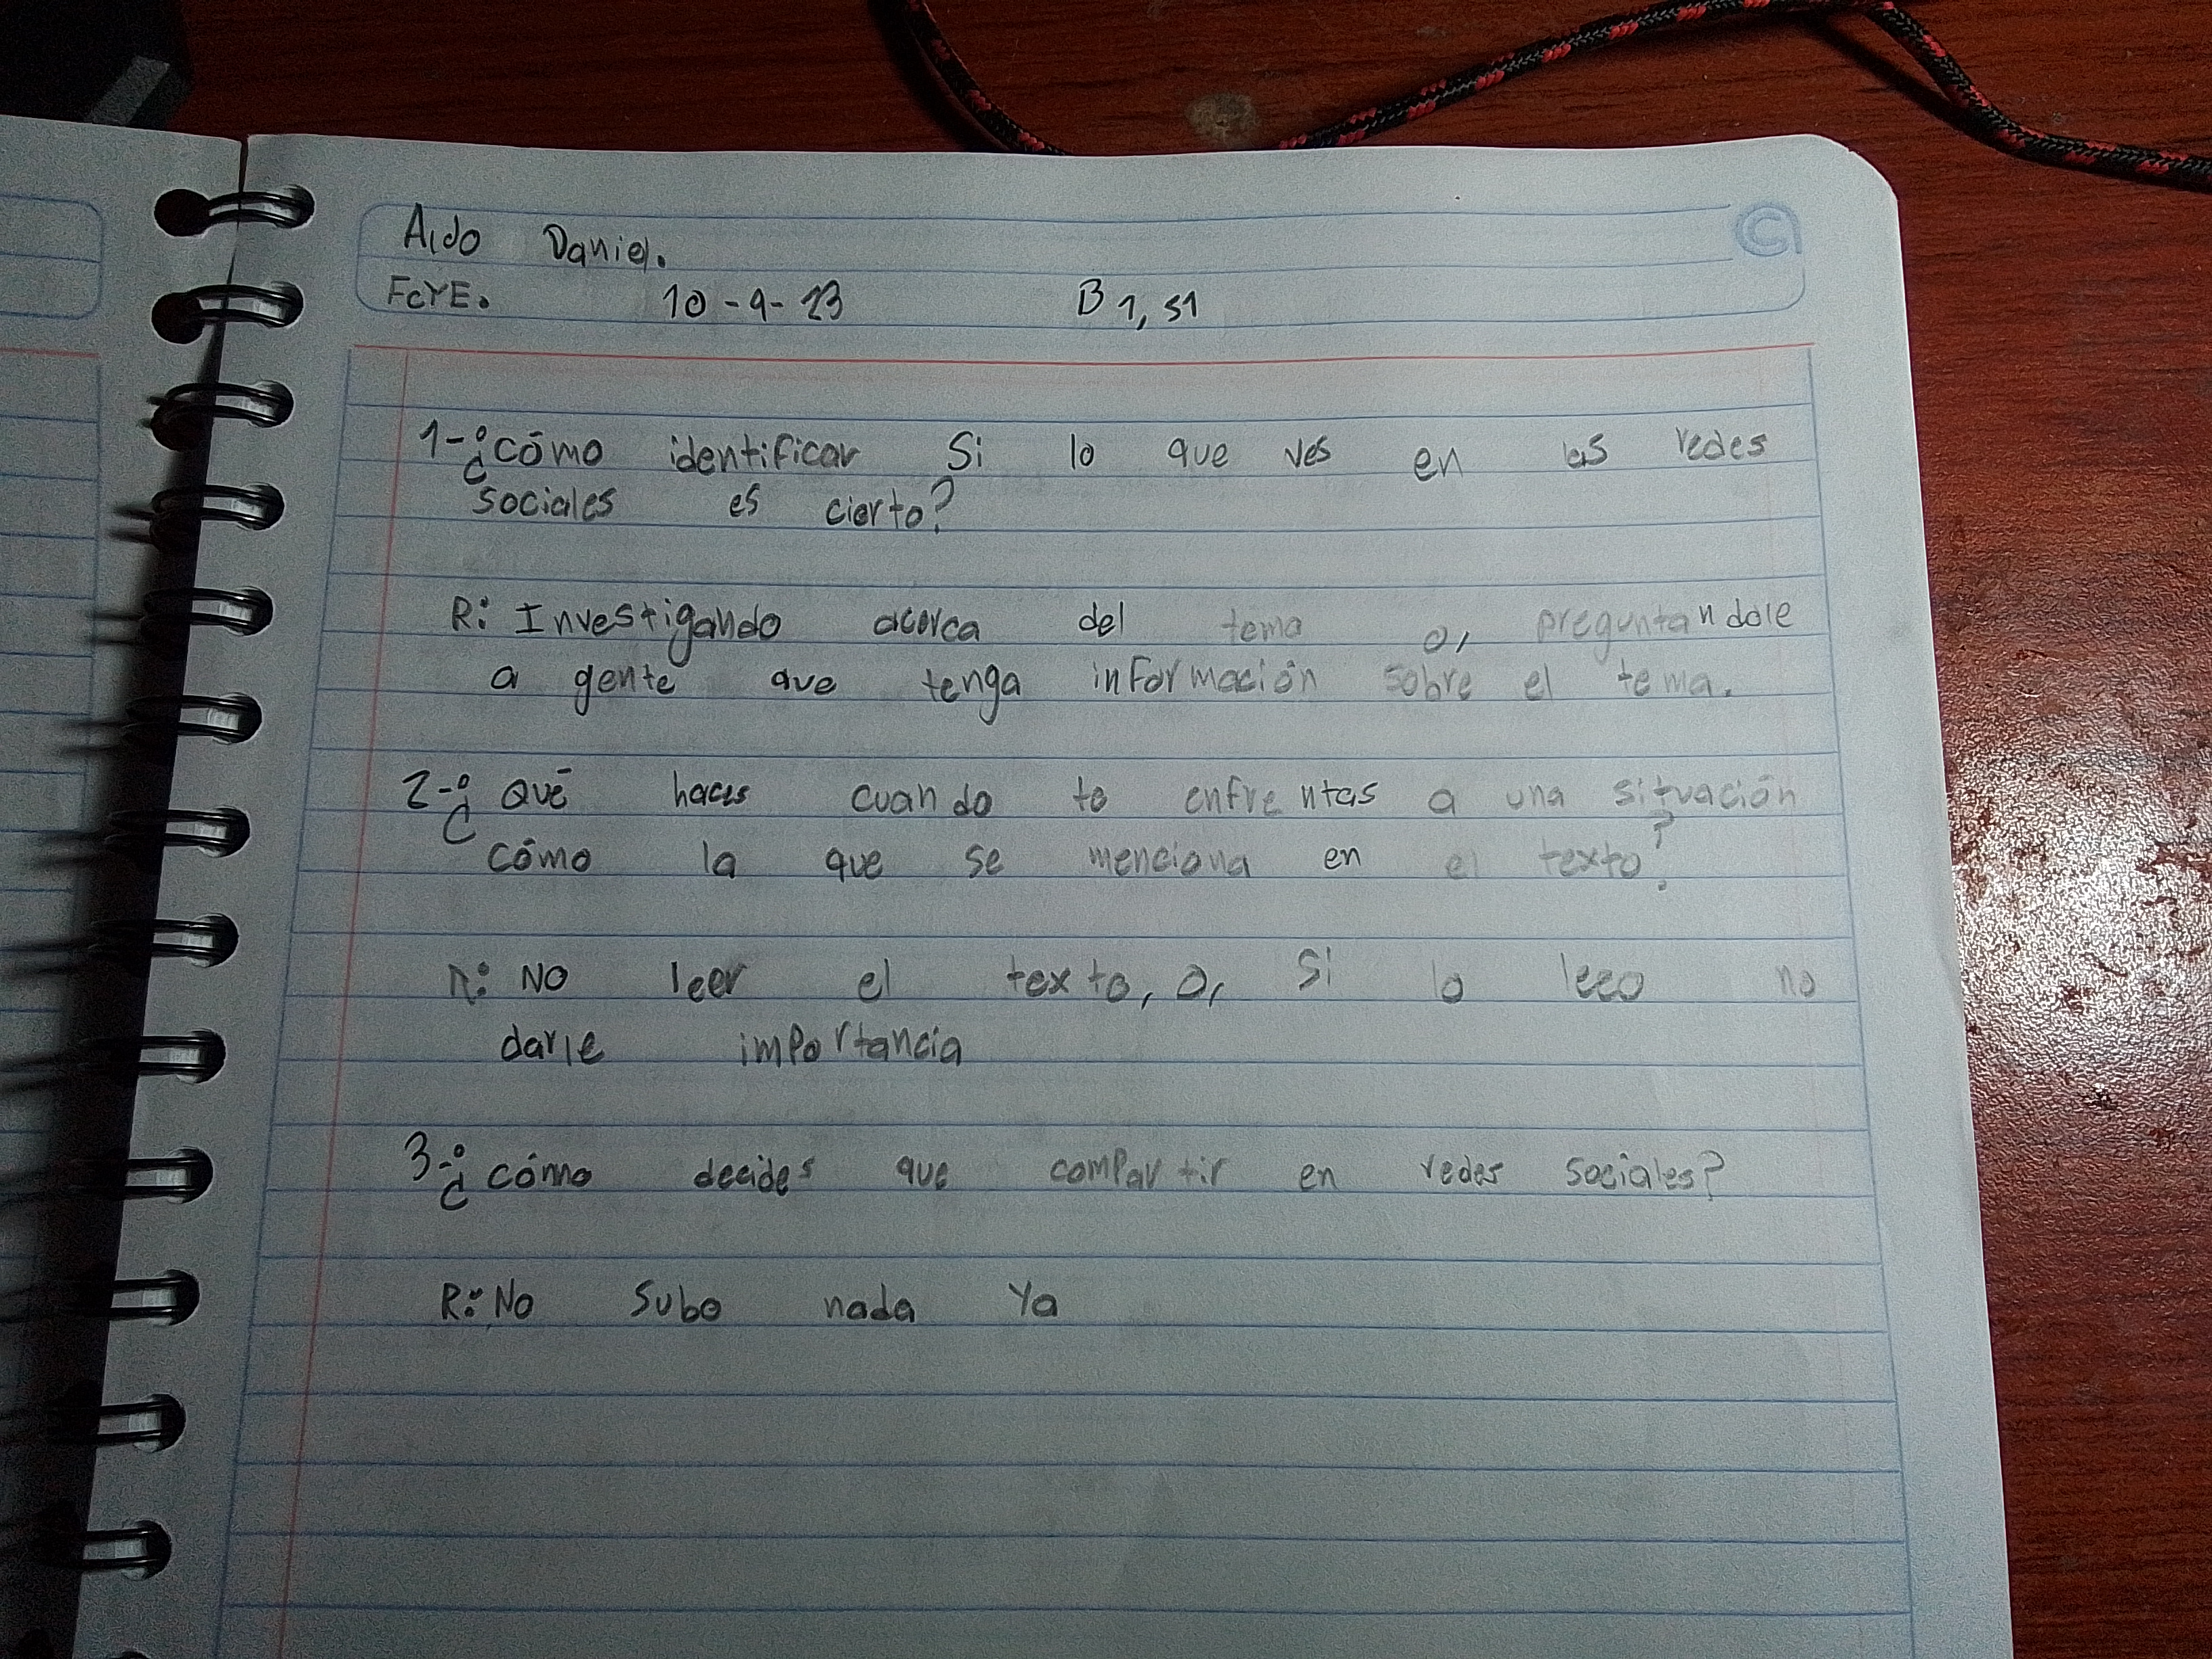 Aldo Daniel.
FcYE. 10-9-23 B1, s1
1-¿cómo identificar Si lo que ves en las redes
sociales es cierto?
R: Investigando acerca del tema o, preguntandole
a gente que tenga información sobre el tema.
2-¿Qué haces cuando te enfrentas a una situación
cómo la que se menciona en el texto?
R: No leer el texto, o, Si lo leeo no
darle importancia
3-¿cómo decides que compartir en redes sociales?
R: No Subo nada Ya